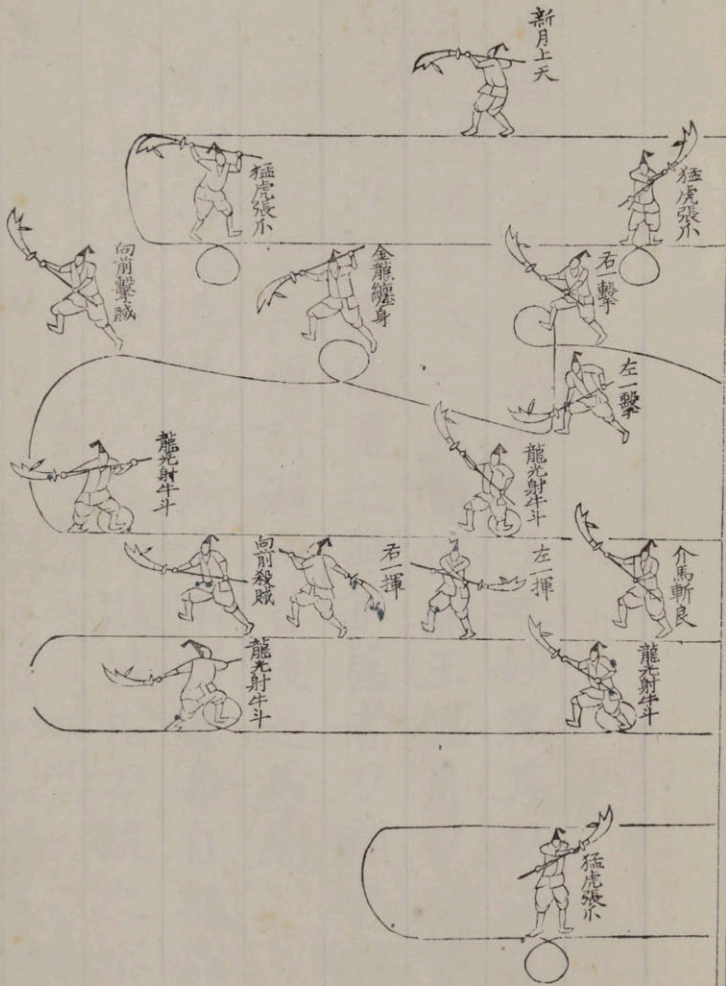 新月上天
猛虎張爪
猛虎張爪
右一擊
金龍纏身
向前擊賊
左一擊
龍光射牛斗
龍光射牛斗
介馬斬良
左一揮
右一揮
向前殺賊
龍光射牛斗
龍光射牛斗
猛虎張爪